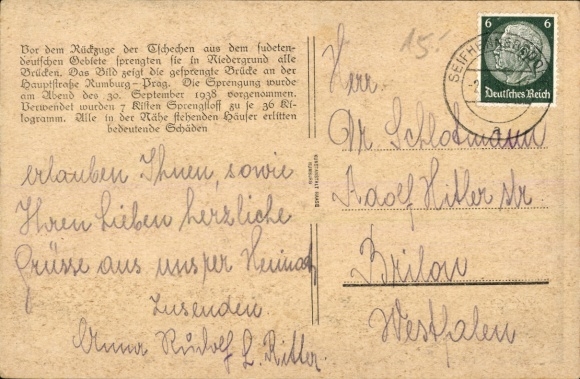 Vor dem Rückzuge der Tschechen aus dem sudeten-
deutschen Gebiete sprengten sie in Niedergrund alle
Brücken. Das Bild zeigt die gesprengte Brücke an der
Hauptstraße Rumburg–Prag. Die Sprengung wurde
am Abend des 30. September 1938 vorgenommen.
Verwendet wurden 7 Kisten Sprengstoff zu je 36 Ki-
logramm. Alle in der Nähe stehenden Häuser erlitten
bedeutende Schäden
erlauben Ihnen, sowie
Ihren Lieben herzliche
Grüsse aus unsrer Heimat
zusenden.
Anna Rudolf
15.-
6 6
Deutsches Reich
Herr
Dr. Schlotmann
Adolf Hitler str
Brilon
Westfalen